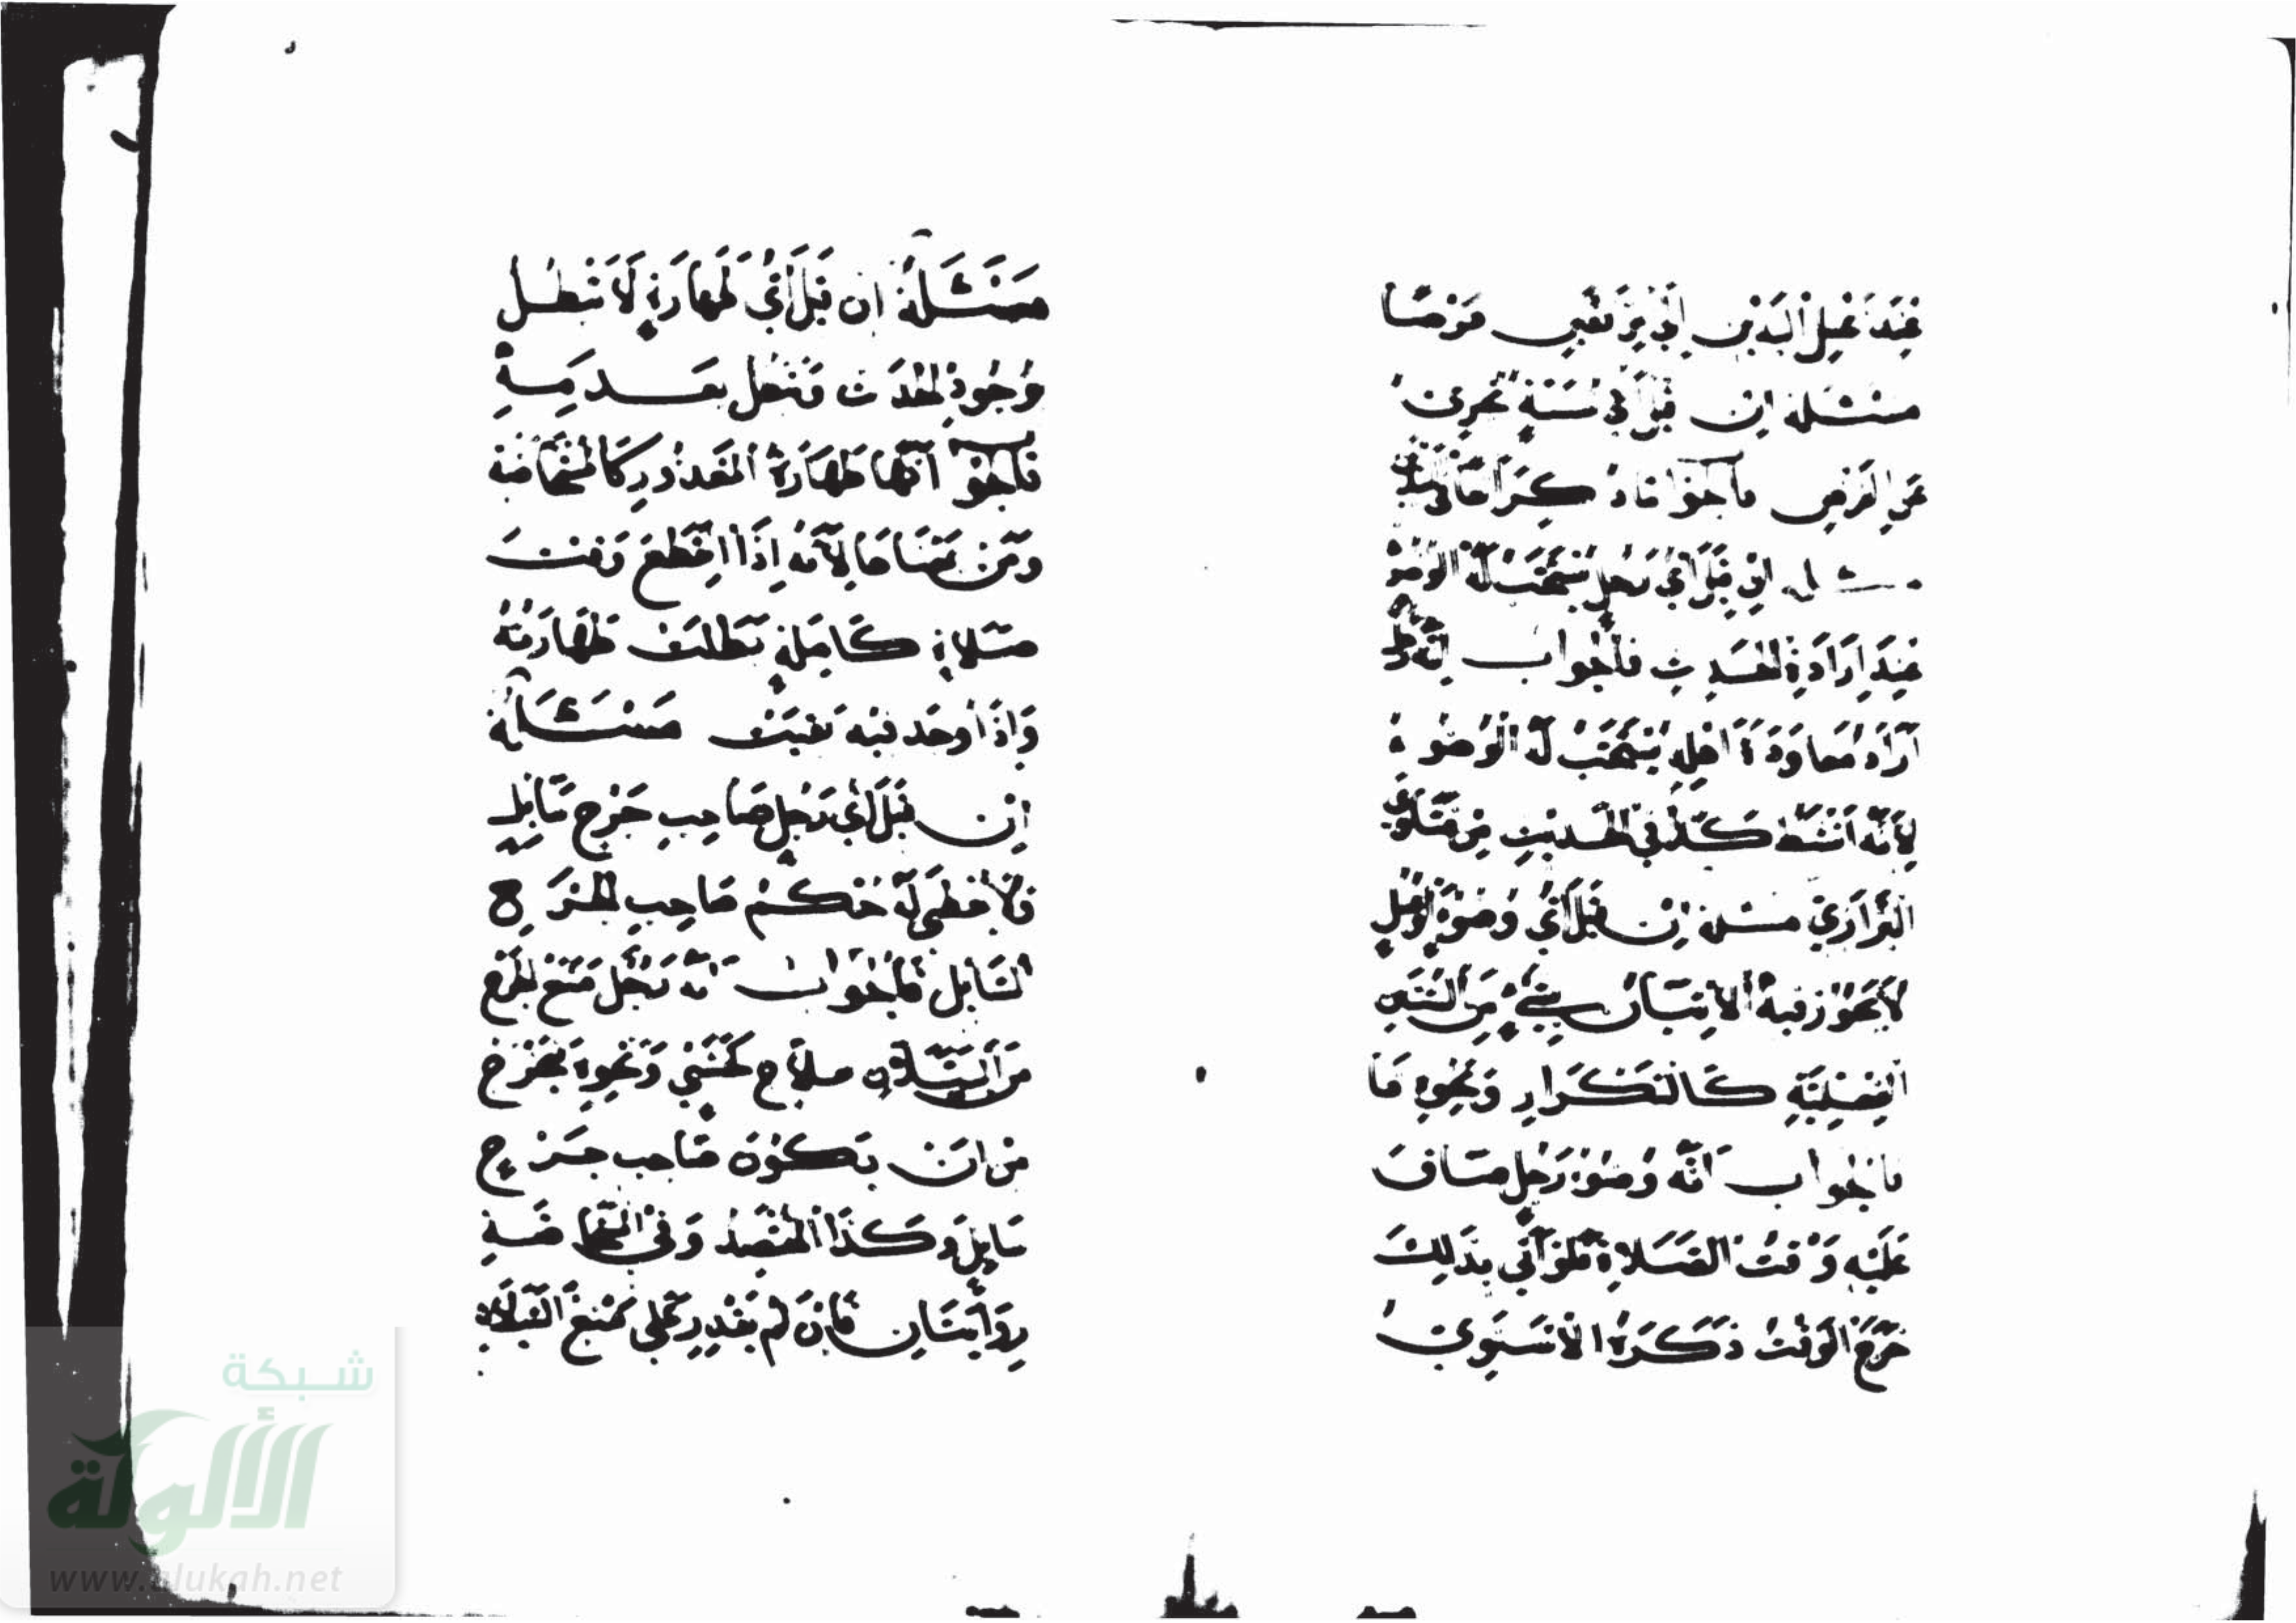 عِندَ غَسْلِ الْيَدَيْنِ إِلَى مِرْفَقَيْنِ فَرْضًا
مسئلة ان قيل أي سنة تجزئ
عن الفرض فالجواب
مسئلة ان قيل أي رجل يستحب له الوضوء
عند ارادة الحدث فالجواب انه
أراد معاودة أهله يستحب له الوضوء
لأنه أنشط كذا في الحديث من فتاوى
البزازي مسئلة ان قيل أي وضوء
لا يجوز فيه الاتيان بشيء من السنن
كالتكرار ونحوه
فالجواب أنه وضوء رجل ضاق
عليه وقت الصلاة فلو أتى بذلك
خرج الوقت ذكره الاسنوي
مسئلة ان قيل أي طهارة لا تبطل
وجود الحدث وتبطل بعدمه
فالجواب أنها طهارة المعذور كالمستحاضة
ومن بمعناها لأنه إذا انقطع وقت
صلاة كاملة بطلت طهارته
وإذا وجد فيه بقيت مسئلة
ان قيل أي رجل صاحب جرح سايل
ولا يعطى له حكم صاحب الجرح
السايل فالجواب انه رجل منع الجرح
من السيلان بعلاج كحشي ونحوه يخرج
من ان يكون صاحب جرح
سايل وكذا المفتصد وفي المستحاضة
روايتان فان لم يقدر على منع السيلان
شبكة
الألوكة
www.alukah.net